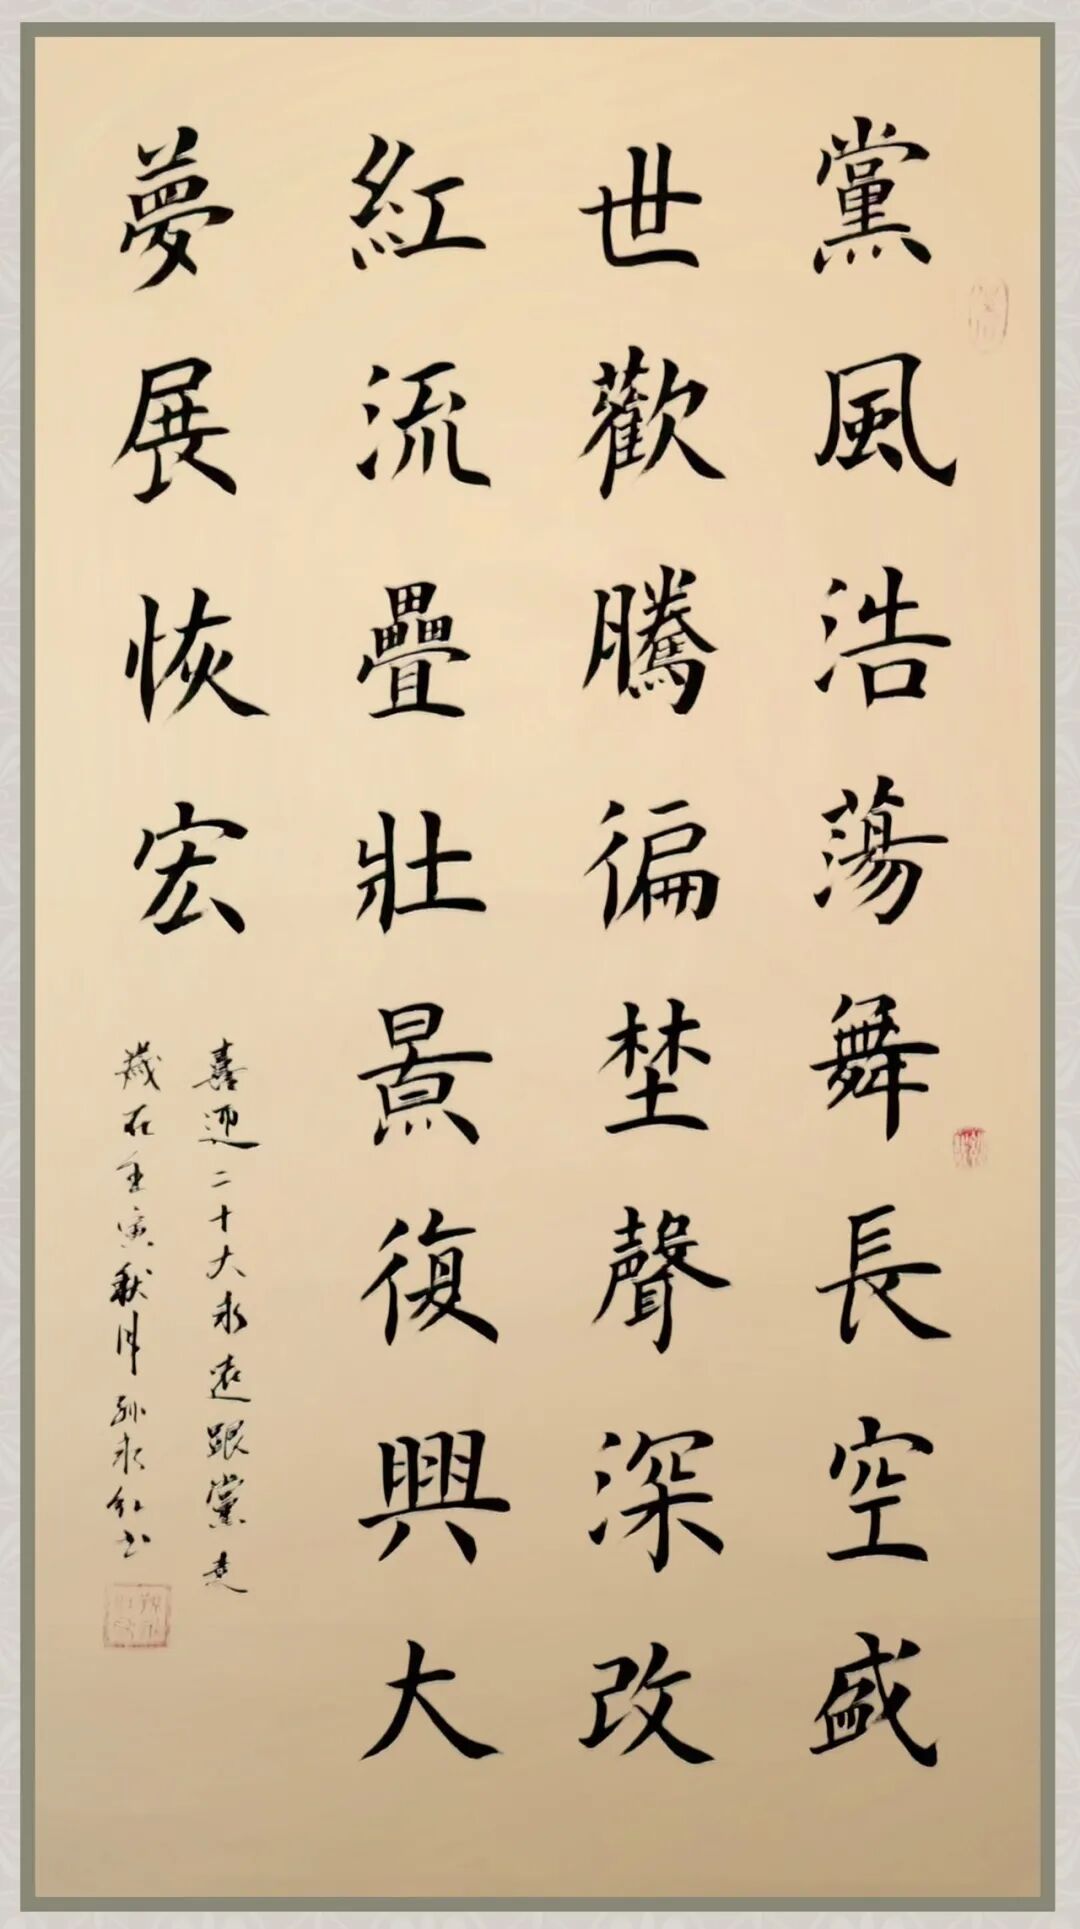 黨風浩蕩舞長空盛
世歡騰徧埜聲深改
紅流疊壯景復興大
夢展恢宏
喜迎二十大永遠跟黨走
歲在壬寅秋月孫永紅書